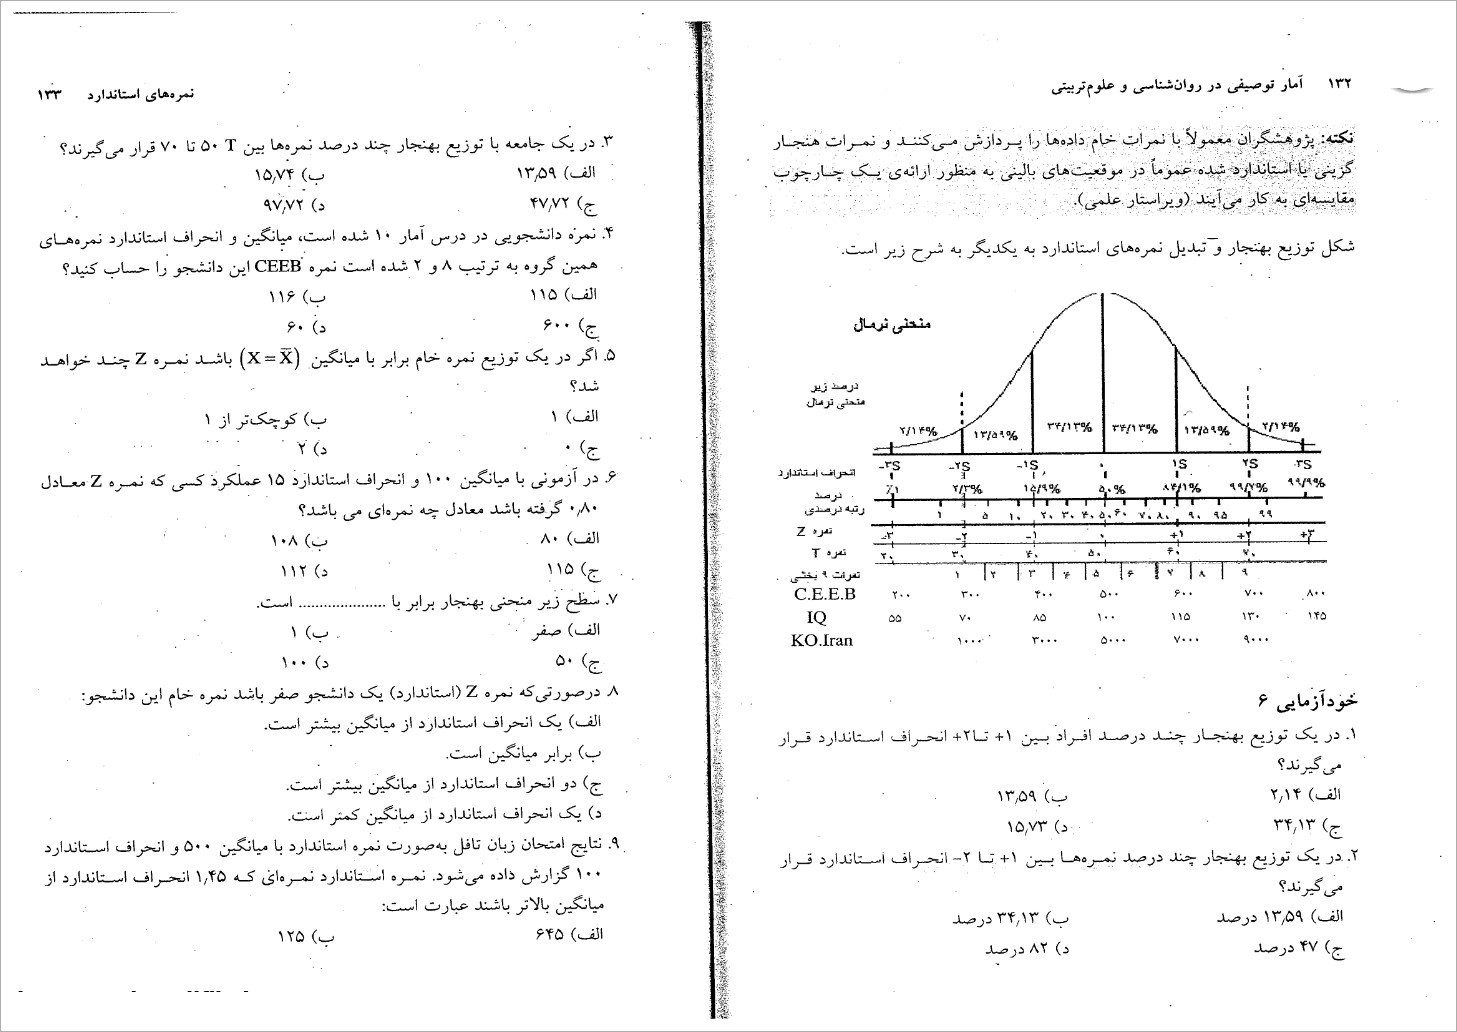 ۱۳۲ آمار توصیفی در روان‌شناسی و علوم‌تربیتی
نکته: پژوهشگران معمولاً با نمرات خام داده‌ها را پردازش می‌کنند و نمرات هنجار
گزینی یا استاندارد شده عموماً در موقعیت‌های بالینی به منظور ارائه‌ی یک چارچوب
مقایسه‌ای به کار می‌آیند (ویراستار علمی).
شکل توزیع بهنجار و تبدیل نمره‌های استاندارد به یکدیگر به شرح زیر است.
منحنی نرمال
درصد زیر
منحنی نرمال
۲/۱۴% ۱۳/۵۹% ۳۴/۱۳% ۳۴/۱۳% ۱۳/۵۹% ۲/۱۴%
انحراف استاندارد -۳S -۲S -۱S ۰ ۱S ۲S ۳S
درصد ٪۱ ۲/۳% ۱۵/۹% ۵۰% ۸۴/۱% ۹۹/۷% ۹۹/۹%
رتبه درصدی ۱ ۵ ۱۰ ۲۰ ۳۰ ۴۰ ۵۰ ۶۰ ۷۰ ۸۰ ۹۰ ۹۵ ۹۹
نمره Z -۳ -۲ -۱ ۰ +۱ +۲ +۳
نمره T ۲۰ ۳۰ ۴۰ ۵۰ ۶۰ ۷۰
نمرات ۹ بخشی ۱ ۲ ۳ ۴ ۵ ۶ ۷ ۸ ۹
C.E.E.B ۲۰۰ ۳۰۰ ۴۰۰ ۵۰۰ ۶۰۰ ۷۰۰ ۸۰۰
IQ ۵۵ ۷۰ ۸۵ ۱۰۰ ۱۱۵ ۱۳۰ ۱۴۵
KO.Iran ۱۰۰۰ ۳۰۰۰ ۵۰۰۰ ۷۰۰۰ ۹۰۰۰
خودآزمایی ۶
۱. در یک توزیع بهنجار چند درصد افراد بین ۱+ تا۲+ انحراف استاندارد قرار
می‌گیرند؟
الف) ۲,۱۴ ب) ۱۳,۵۹
ج) ۳۴,۱۳ د) ۱۵,۷۳
۲. در یک توزیع بهنجار چند درصد نمره‌ها بین ۱+ تا ۲- انحراف استاندارد قرار
می‌گیرند؟
الف) ۱۳,۵۹ درصد ب) ۳۴,۱۳ درصد
ج) ۴۷ درصد د) ۸۲ درصد
نمره‌های استاندارد ۱۳۳
۳. در یک جامعه با توزیع بهنجار چند درصد نمره‌ها بین T ۵۰ تا ۷۰ قرار می‌گیرند؟
الف) ۱۳,۵۹ ب) ۱۵,۷۴
ج) ۴۷,۷۲ د) ۹۷,۷۲
۴. نمره دانشجویی در درس آمار ۱۰ شده است، میانگین و انحراف استاندارد نمره‌های
همین گروه به ترتیب ۸ و ۲ شده است نمره CEEB این دانشجو را حساب کنید؟
الف) ۱۱۵ ب) ۱۱۶
ج) ۶۰۰ د) ۶۰
۵. اگر در یک توزیع نمره خام برابر با میانگین (X = X̄) باشد نمره Z چند خواهد
شد؟
الف) ۱ ب) کوچک‌تر از ۱
ج) ۰ د) ۲
۶. در آزمونی با میانگین ۱۰۰ و انحراف استاندارد ۱۵ عملکرد کسی که نمره Z معادل
۰,۸۰ گرفته باشد معادل چه نمره‌ای می باشد؟
الف) ۸۰ ب) ۱۰۸
ج) ۱۱۵ د) ۱۱۲
۷. سطح زیر منحنی بهنجار برابر با ..................... است.
الف) صفر ب) ۱
ج) ۵۰ د) ۱۰۰
۸. درصورتی‌که نمره Z (استاندارد) یک دانشجو صفر باشد نمره خام این دانشجو:
الف) یک انحراف استاندارد از میانگین بیشتر است.
ب) برابر میانگین است.
ج) دو انحراف استاندارد از میانگین بیشتر است.
د) یک انحراف استاندارد از میانگین کمتر است.
۹. نتایج امتحان زبان تافل به‌صورت نمره استاندارد با میانگین ۵۰۰ و انحراف استاندارد
۱۰۰ گزارش داده می‌شود. نمره استاندارد نمره‌ای که ۱,۴۵ انحراف استاندارد از
میانگین بالاتر باشند عبارت است:
الف) ۶۴۵ ب) ۱۲۵